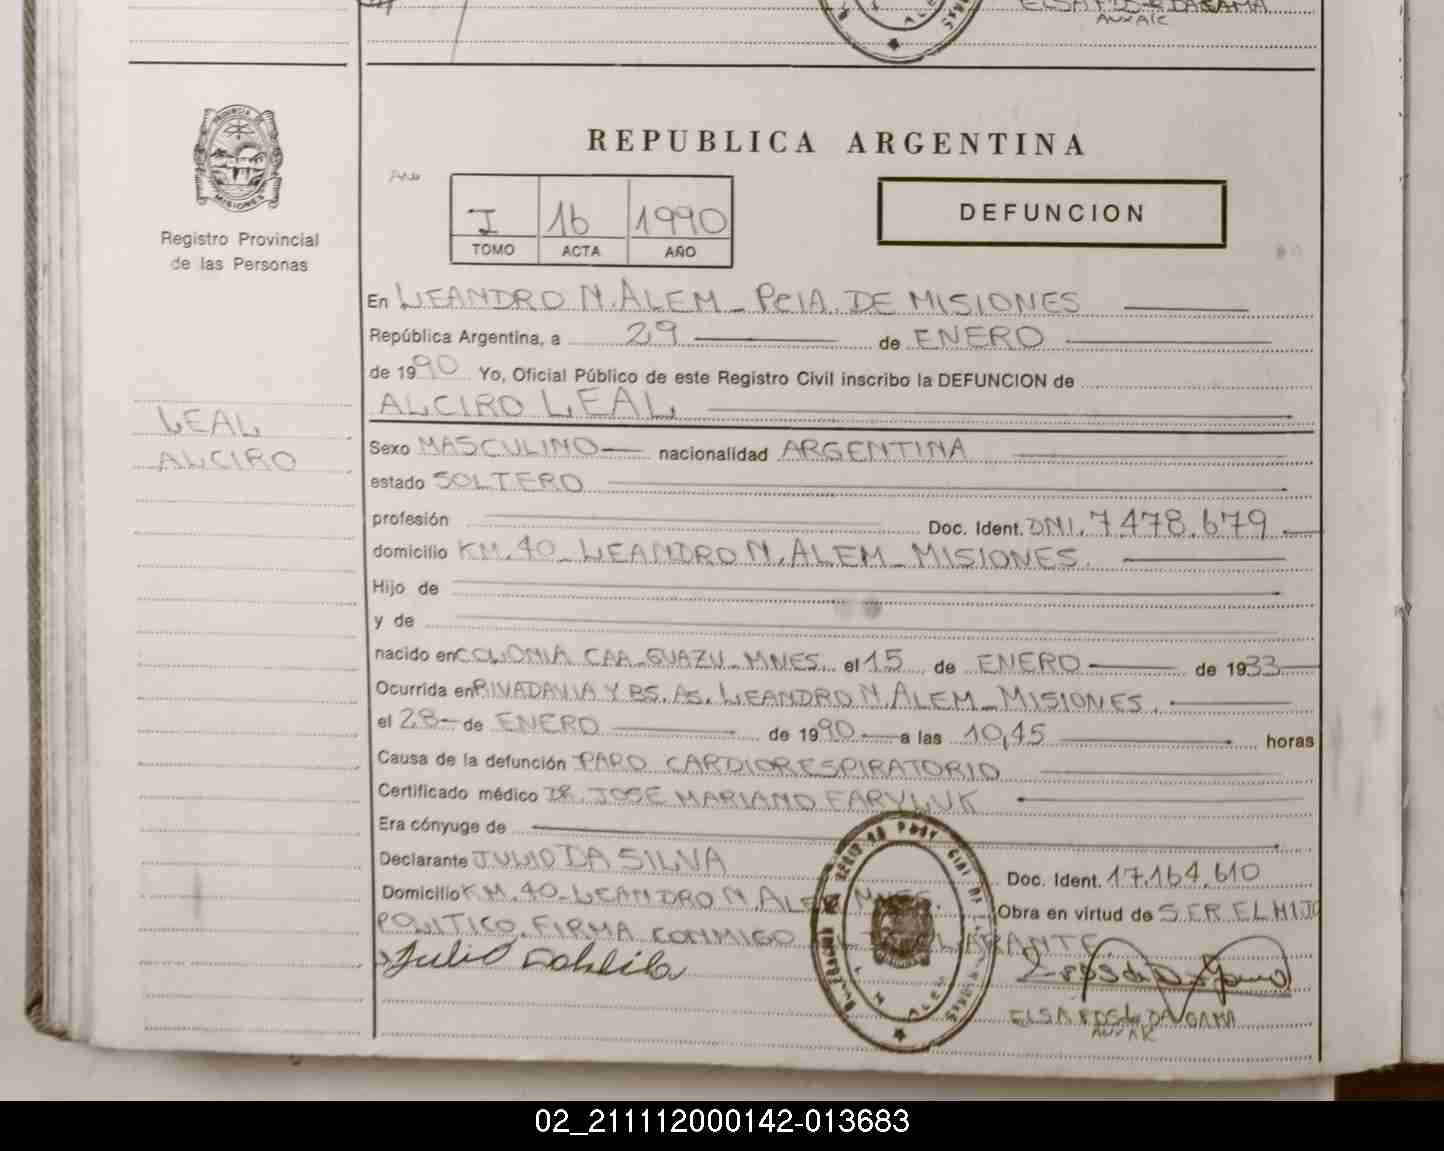 AUX AK
REPUBLICA ARGENTINA
PROVINCIA DE
MISIONES
Registro Provincial
de las Personas
I 16 1990
TOMO ACTA AÑO
DEFUNCION
En LEANDRO N. ALEM - PCIA. DE MISIONES
República Argentina, a 29 de ENERO
de 1990 Yo, Oficial Público de este Registro Civil inscribo la DEFUNCION de
ALCIRO LEAL
LEAL
ALCIRO
Sexo MASCULINO nacionalidad ARGENTINA
estado SOLTERO
profesión Doc. Ident. DNI. 7478.679
domicilio KM. 40 - LEANDRO N. ALEM - MISIONES.
Hijo de
y de
nacido en COLONIA CAA-GUAZU - MNES. el 15 de ENERO de 1933
Ocurrida en RIVADAVIA Y BS. AS. LEANDRO N. ALEM - MISIONES.
el 28 de ENERO de 1990 a las 10,45 horas
Causa de la defunción PARO CARDIORESPIRATORIO
Certificado médico DR. JOSE MARIANO FARYLUK
Era cónyuge de
Declarante JULIO DA SILVA Doc. Ident. 17.164.610
Domicilio KM. 40 - LEANDRO N. ALEM MNES. Obra en virtud de SER EL HIJO
POLITICO. FIRMA CONMIGO EL DECLARANTE
Julio
DA GAMA
AUX AK
02_211112000142-013683